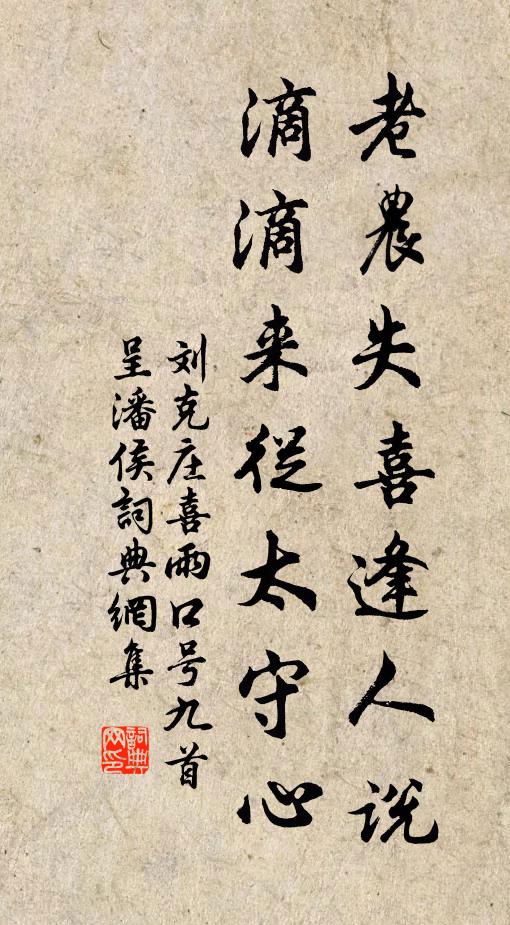 老農失喜逢人說
滴滴来從太守心
刘克庄喜雨口号九首
呈潘侯詞典網集
詞典
网印